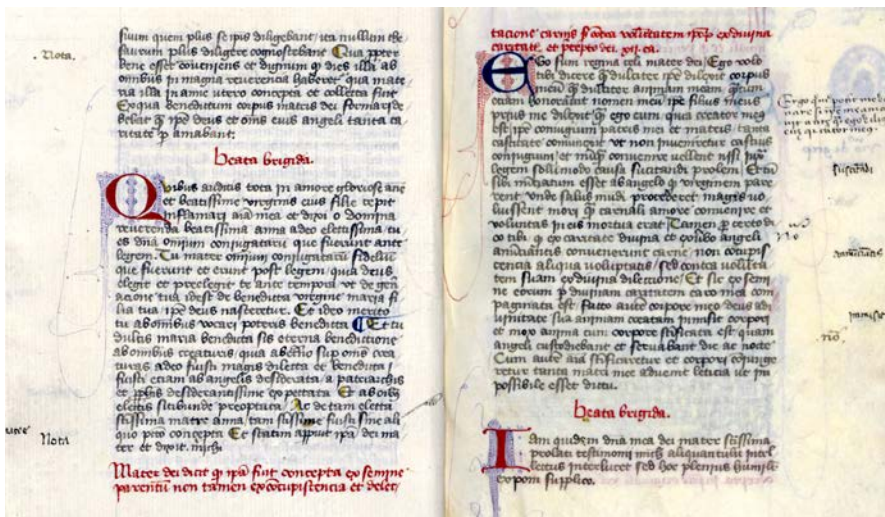 Nota.
sivum quem plus se ipis diligebant, ita nullum the
saurum plus diligere cognoscebant Qua ppter
bene esset conveniens et dignum q dies illa ab
omnibus in magna reverencia haberet qua mate
ria illa in anne utero concepta et collecta fuit
Ex qua benedictum corpus matris dei formari de
bebat q ipe deus et oms eius angeli tanta ca
ritate p amabant.
Beata brigida.
Quibus auditis tota in amore gloriose ane
et beatissime virginis eius filie cepit
inflamari aia mea et dixi o domina
reverenda beatissima anna adeo electissima tu
es dna omnium conjugataru que fuerunt ante
legem. Tu mater omnium conjugataru fideliu
que fuerunt et erunt post legem, qua deus
elegit et preelegit te ante tempora ut de gen
acione tua idest de benedicta virgine maria fi
lia tua ipe deus nasceretur. Et ideo merito
tu ab omnibus vocari poteris benedicta Et tu
dulcis maria benedicta sis eterna benedictione
ab omnibus creaturis, qua ab eterno sup oms crea
turas adeo fuisti magis dilecta et benedicta,
fuisti etiam ab angelis desiderata, a patriarchis
et pphis desiderantissime expectata Et ab oibus
electis sitibunde preoptata, Ac de tam electa
stissima matre anna, tam stissime fuisti sine ali
quo pcto concepta Et statim apparuit ipa dei ma
ter et dixit michi
Nota
Mater dei dicit q ipa fuit concepta ex semine
parentum non tamen ex concupistencia et delec
tacione carnis s contra voluntatem ipor ex divina
caritate et precepto dei. xij. ca.
Ego sum regina celi mater dei, Ego volo
tibi dicere q dulciter ipe dilexit corpus
meu q dulciter animam meam, q cum
etiam honoravit nomen meu ipe filius meus
prius me dilexit q ego eum qua creator meus
est ipe conjugium patris mei et matris, tanta
castitate comunxit ut non inveniretur castius
conjugium, et nuq convenire vellent nisi iuxta
legem solumodo causa suscitandi prolem. Et cu
sibi nuciatum esset ab angelo q virginem pare
rent unde salus mudi procederet magis vo
luissent mori q carnali amore convenire et
voluntas in eis mortua erat, Tamen p certo di
co tibi q ex caritate divina et ex verbo angeli
anuciantis convenerunt carne, non concupis
cencia aliqua voluptatis, sed contra volunta
tem suam ex divina dilectione, Et sic ex semi
ne eorum p divinam caritatem caro mea com
paginata est, Facto aute corpore meo deus a di
vinitate sua animam creatam inmisit corpori
et mox anima cum corpore stificata est quam
angeli custodiebant et servabant die ac nocte
Cum aute aia stificaretur et corpori coiunge
retur tanta matri mee advenit leticia ut im
possibile esset dictu.
Beata brigida.
Iam quidem dna mea dei mater stissima
prolati testimonii michi aliquantulu intel
lectus interlucet sed hoc plenius humili
exponi supplico.